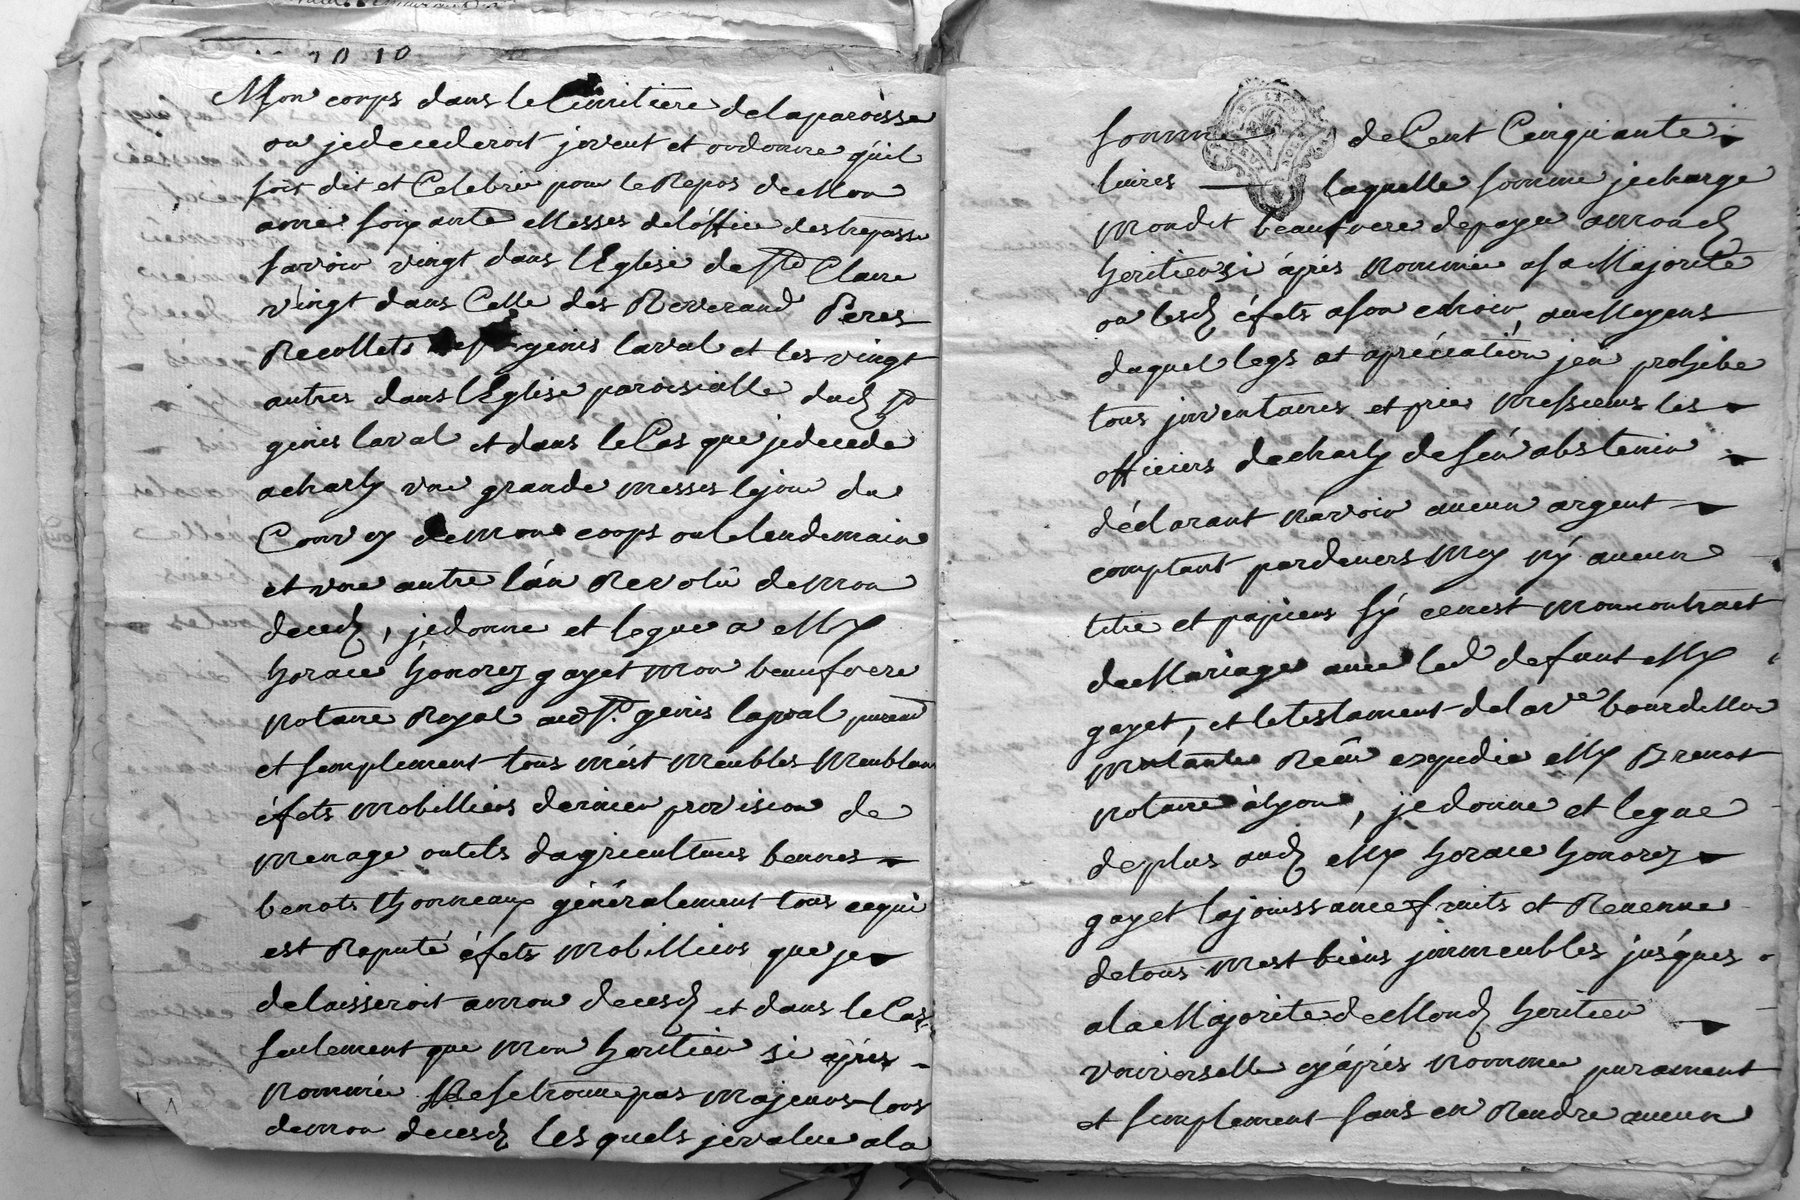 Mon corps dans le Cimitiere de la paroisse
ou je decederoit je veut et ordonne qu'il
soit dit et Celebré pour le Repos de Mon
ame soixante Messes de l'office des trepassé
savoir vingt dans l'Eglise de Ste Claire
vingt dans Celle des Reverand Peres
Recollets de St genis laval et les vingt
autres dans l'Eglise paroissialle dud St
genis laval et dans le Cas que je decede
a charly une grande messes le jour du
Convoy de mon corps ou le lendemain
et une autre l'an Revolû de mon
deced, je donne et legue a Mr
horace honorez gayet mon beaufrere
notaire Royal aud St. genis lapval purem
et simplement tous mést meubles meublan
éfets mobilliers denieer provision de
menage outils d'agricultures bennes
benots thonneaux généralement tous ce qui
est Reputé éfets mobilliers que je
delaisseroit a mon decesd et dans le Cas
seulement que mon heritier si après
nommée ne se trouve pas majeurs lors
de mon decesd les quels j'evalue a la
somme de Cent Cinquante
livres laquelle somme je charge
mondit beaufrere de payer a mond
heritier si áprés nommée a sa Majorité
ou lesd éfets a son choix, au Moyens
duquel legs et apréciation j'en prohibe
tous inventaires et prie messieurs les
officiers de charly de s'en abstenir
déclarant n'avoir aucun argent
comptant pardevers moy ny aucun
titre et papiers sy ce n'est mon contract
de Mariage avec led defunt Mr
gayet, et le testament de la ve bourdelle
expedié Mr Brenot
notaire à lyon, je donne et legue
de plus aud Mr horace honorez
gayet la jouissance fruits et Revenue
de tous mest biens immeubles jusques
a la Majorité de Mond heritier
universelle cy áprés nommée purament
et simplement sans en Rendre aucun